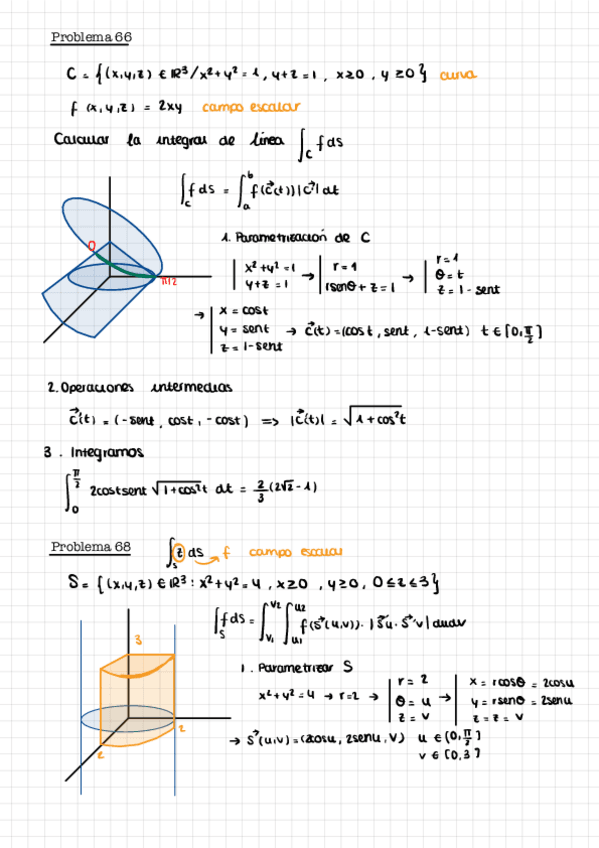 Problema 66
C = {(x,y,z) ∈ IR³/x²+y² = 1, y+z = 1, x≥0, y≥0} curva
f (x,y,z) = 2xy campo escalar
Calcular la integral de línea ∫_C f ds
∫_C f ds = ∫_a^b f(c⃗(t)) |c⃗'| dt
0
π/2
1. Parametrización de C
x²+y² = 1 → r = 1 → r = 1
y+z = 1 rsenθ + z = 1 θ = t
z = 1 - sent
→ x = cost
y = sent → c⃗(t) = (cost, sent, 1-sent) t ∈ [0, π/2]
z = 1-sent
2. Operaciones intermedias
c⃗'(t) = (-sent, cost, -cost) => |c⃗'(t)| = √1+cos²t
3. Integramos
∫_0^{π/2} 2costsent √1+cos²t dt = 2/3 (2√2 - 1)
Problema 68 ∫_S z ds → f campo escalar
S = {(x,y,z) ∈ IR³: x²+y² = 4, x≥0, y≥0, 0≤z≤3}
∫_S f ds = ∫_{v1}^{v2} ∫_{u1}^{u2} f(s⃗(u,v)) · |s⃗u · s⃗v| dudv
3
2
2
1. Parametrizar S
x²+y² = 4 → r=2 → r = 2 → x = rcosθ = 2cosu
θ = u y = rsenθ = 2senu
z = v z = z = v
→ s⃗(u,v) = (2cosu, 2senu, v) u ∈ [0, π/2]
v ∈ [0,3]